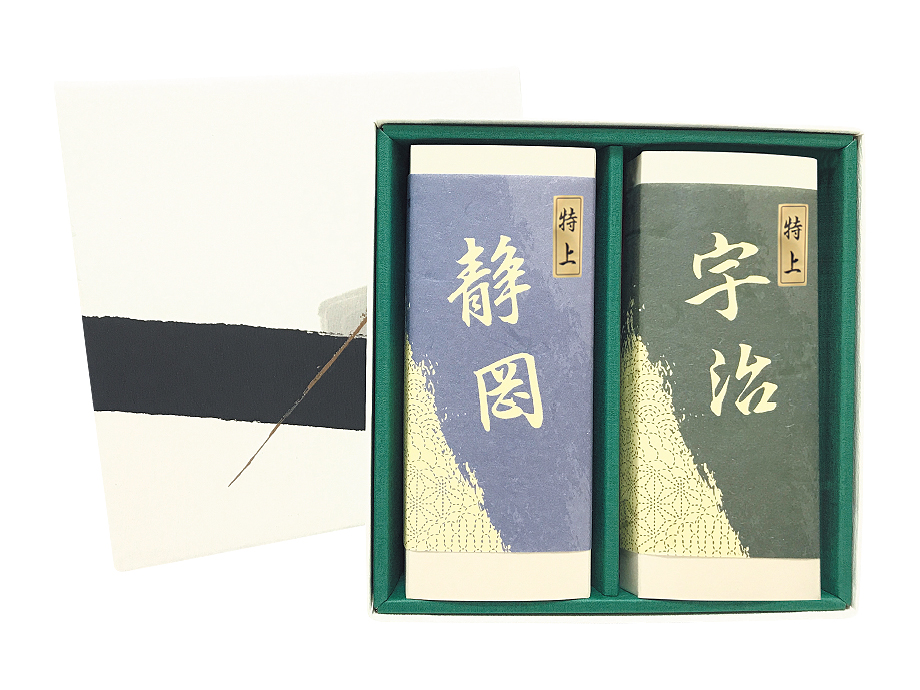 特上
静岡
特上
宇治